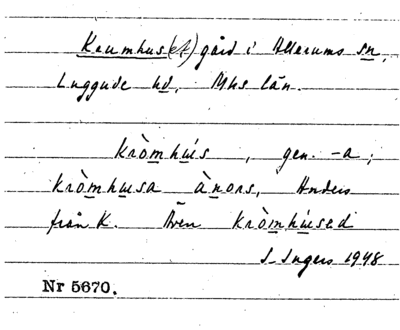 Krumhus(et) gård i Allerums sn,
Luggude hd, Mhs län.
kròmhús, gen. -a;
kròmhusa ànors, Anders
från K. Även kròmhúsed
I. Ingers 1948
Nr 5670.